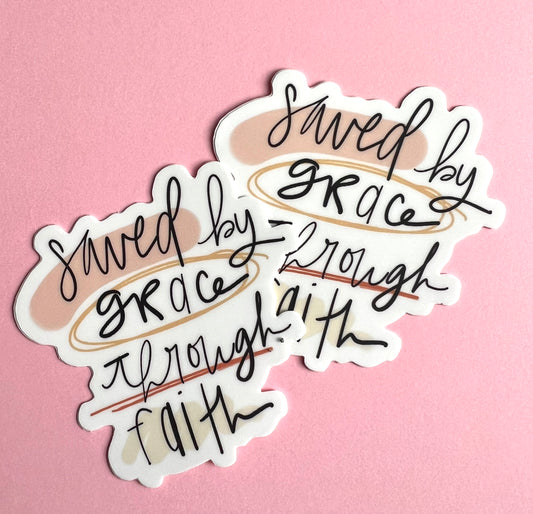 saved by
grace
through
faith
saved by
grace
through
faith